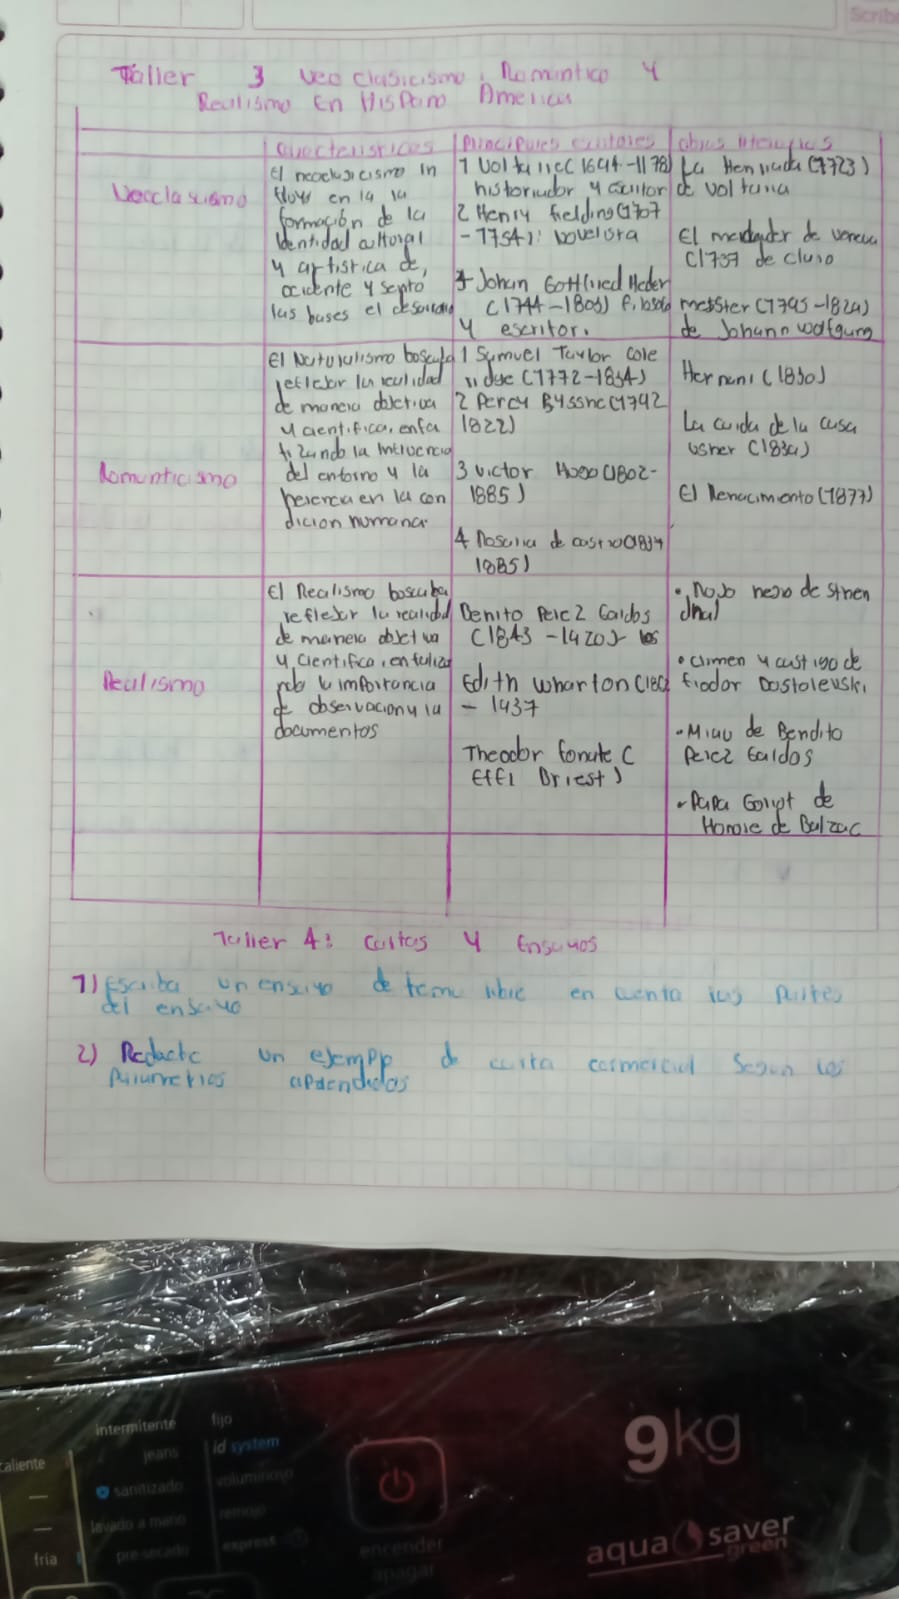 Scribe
Taller 3 Neo clasicismo, Romantico y
Realismo En Hispano Americas
caracteristicas
principales escritores
obras literarias
Neoclasicismo
El neoclasicismo in
fluyo en la la
formación de la
identidad cultural
y artistica de,
occidente y sento
las bases el desarrollo
1 Voltaire (1694-1178)
historiador y escritor
2 Henry fielding (1707
-1754): novelista
Johan Gottfried Heder
(1744-1803) filosofo
y escritor.
La Henriada (1723)
de voltaria
El mercader de venecia
(1737 de
meister (1795-1829)
de Johann wolfgang
Romanticismo
El Naturalismo boscaba
reflejar la realidad
de manera objetiva
y cientifica, enfa
tizando la influencia
del entorno y la
herencia en la con
dicion humana.
1 Samuel Taylor Cole
ridge (1772-1834)
2 Percy Bysshe (1792
1822)
3 Victor Hogo (1802-
1885)
4 Rosalia de castro (1834
1885)
Hernani (1830)
La caida de la casa
usher (1839)
El Renacimiento (1877)
Realismo
El Realismo boscaba
reflejar la realidad
de manera objetiva
y cientifica, enfatiza
ndo la importancia
de observacion y la
documentos
Benito Perez Galdos
(1843-1920)- los
Edith Wharton (1862
- 1937
Theodor fonate (
Effi Briest)
• Rojo negro de Sthen
dhal
• crimen y castigo de
fiodor Dostoievski.
• Miau de Bendito
Perez Galdos
• Papa Goriot de
Honore de Balzac
Taller 4: Cartas y Ensayos
1) Escriba un ensayo de tema libre en cuenta las partes
del ensayo
2) Redacte un ejemplo de carta cormercial segun los
parametros aprendidos
intermitente fijo
jeans id system
caliente
sanitizado voluminoso
lavado a mano remojo
fria pre-secado express
encender
apagar
9kg
aqua saver
green